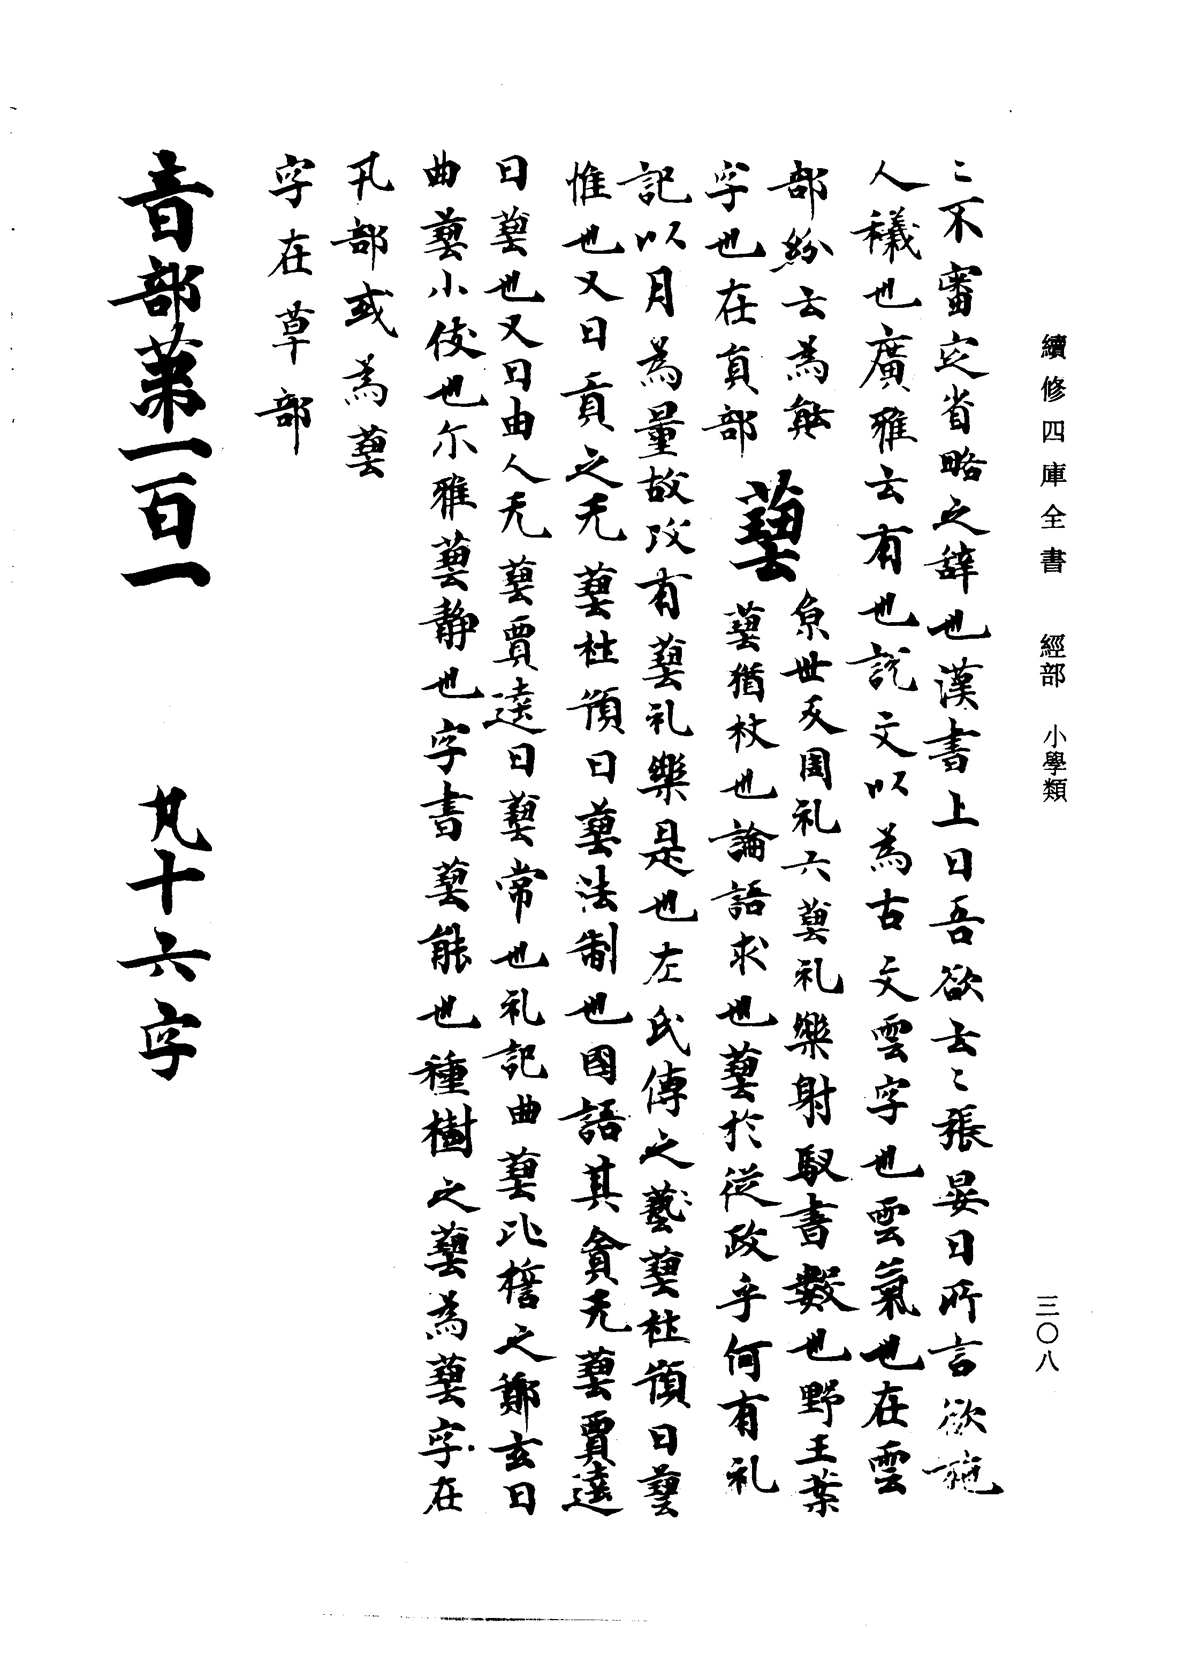 續修四庫全書 經部 小學類 三〇八
〻不審定省略之辞也漢書上曰吾欲云〻張晏曰所言欲施
人襪也廣雅云有也說文以為古文雲字也雲氣也在雲
部紛云為䰟
字也在員部
藝
魚世反周礼六藝礼樂射馭書數也野王案
藝猶杖也論語求也藝於從政乎何有礼
記以月為量故功有藝礼樂是也左氏傳之藝藝杜預曰藝
惟也又曰貢之无藝杜預曰藝法制也國語其貪无藝賈逵
曰藝也又曰由人无藝賈逵曰藝常也礼記曲藝比誓之鄭玄曰
曲藝小伎也尓雅藝静也字書藝能也種樹之藝為蓺字在
丮部或為萟
字在草部
音部第一百一 凡十六字